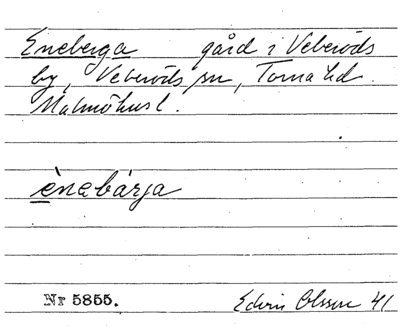 Eneberga gård i Veberöds
by, Veberöds sn, Torna hd.
Malmöhus l.
ènebárja
Nr 5855. Edvin Olsson 41